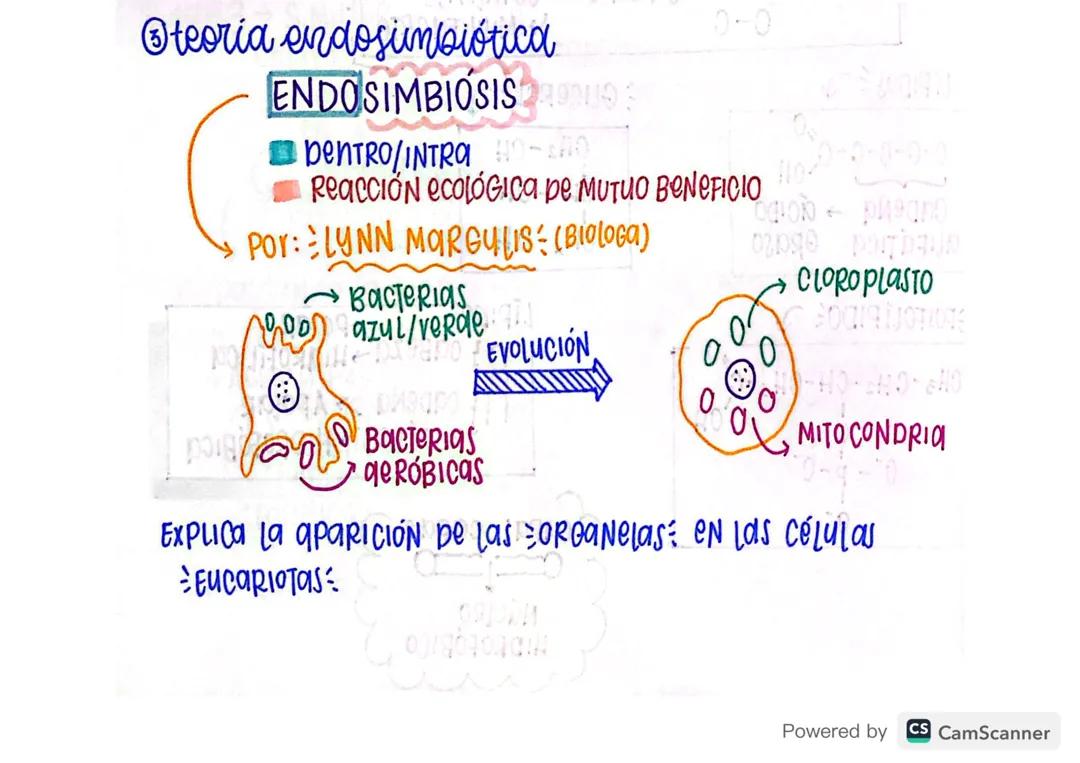 ③ teoría endosimbiótica
ENDOSIMBIÓSIS
DENTRO/INTRA
REACCIÓN ECOLÓGICA DE MUTUO BENEFICIO
POR: LYNN MARGULIS (BIOLOGA)
BACTERIAS
azul/verde
EVOLUCIÓN
BACTERIAS
AERÓBICAS
CLOROPLASTO
MITOCONDRIA
EXPLICA LA APARICIÓN DE LAS ORGANELAS EN LAS CÉLULAS
EUCARIOTAS
Powered by CS CamScanner